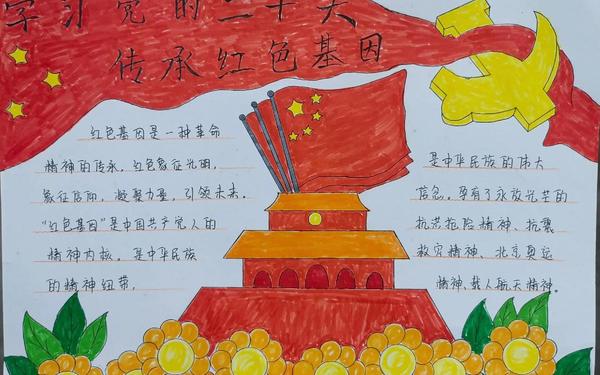 学习党的二十大
传承红色基因
红色基因是一种革命
精神的传承，红色象征光明，
象征信仰，凝聚力量，引领未来。
“红色基因”是中国共产党人的
精神内核，是中华民族
的精神纽带，
是中华民族的伟大
信念，孕育了永放光芒的
抗洪抢险精神、抗震
救灾精神、北京奥运
精神、载人航天精神。